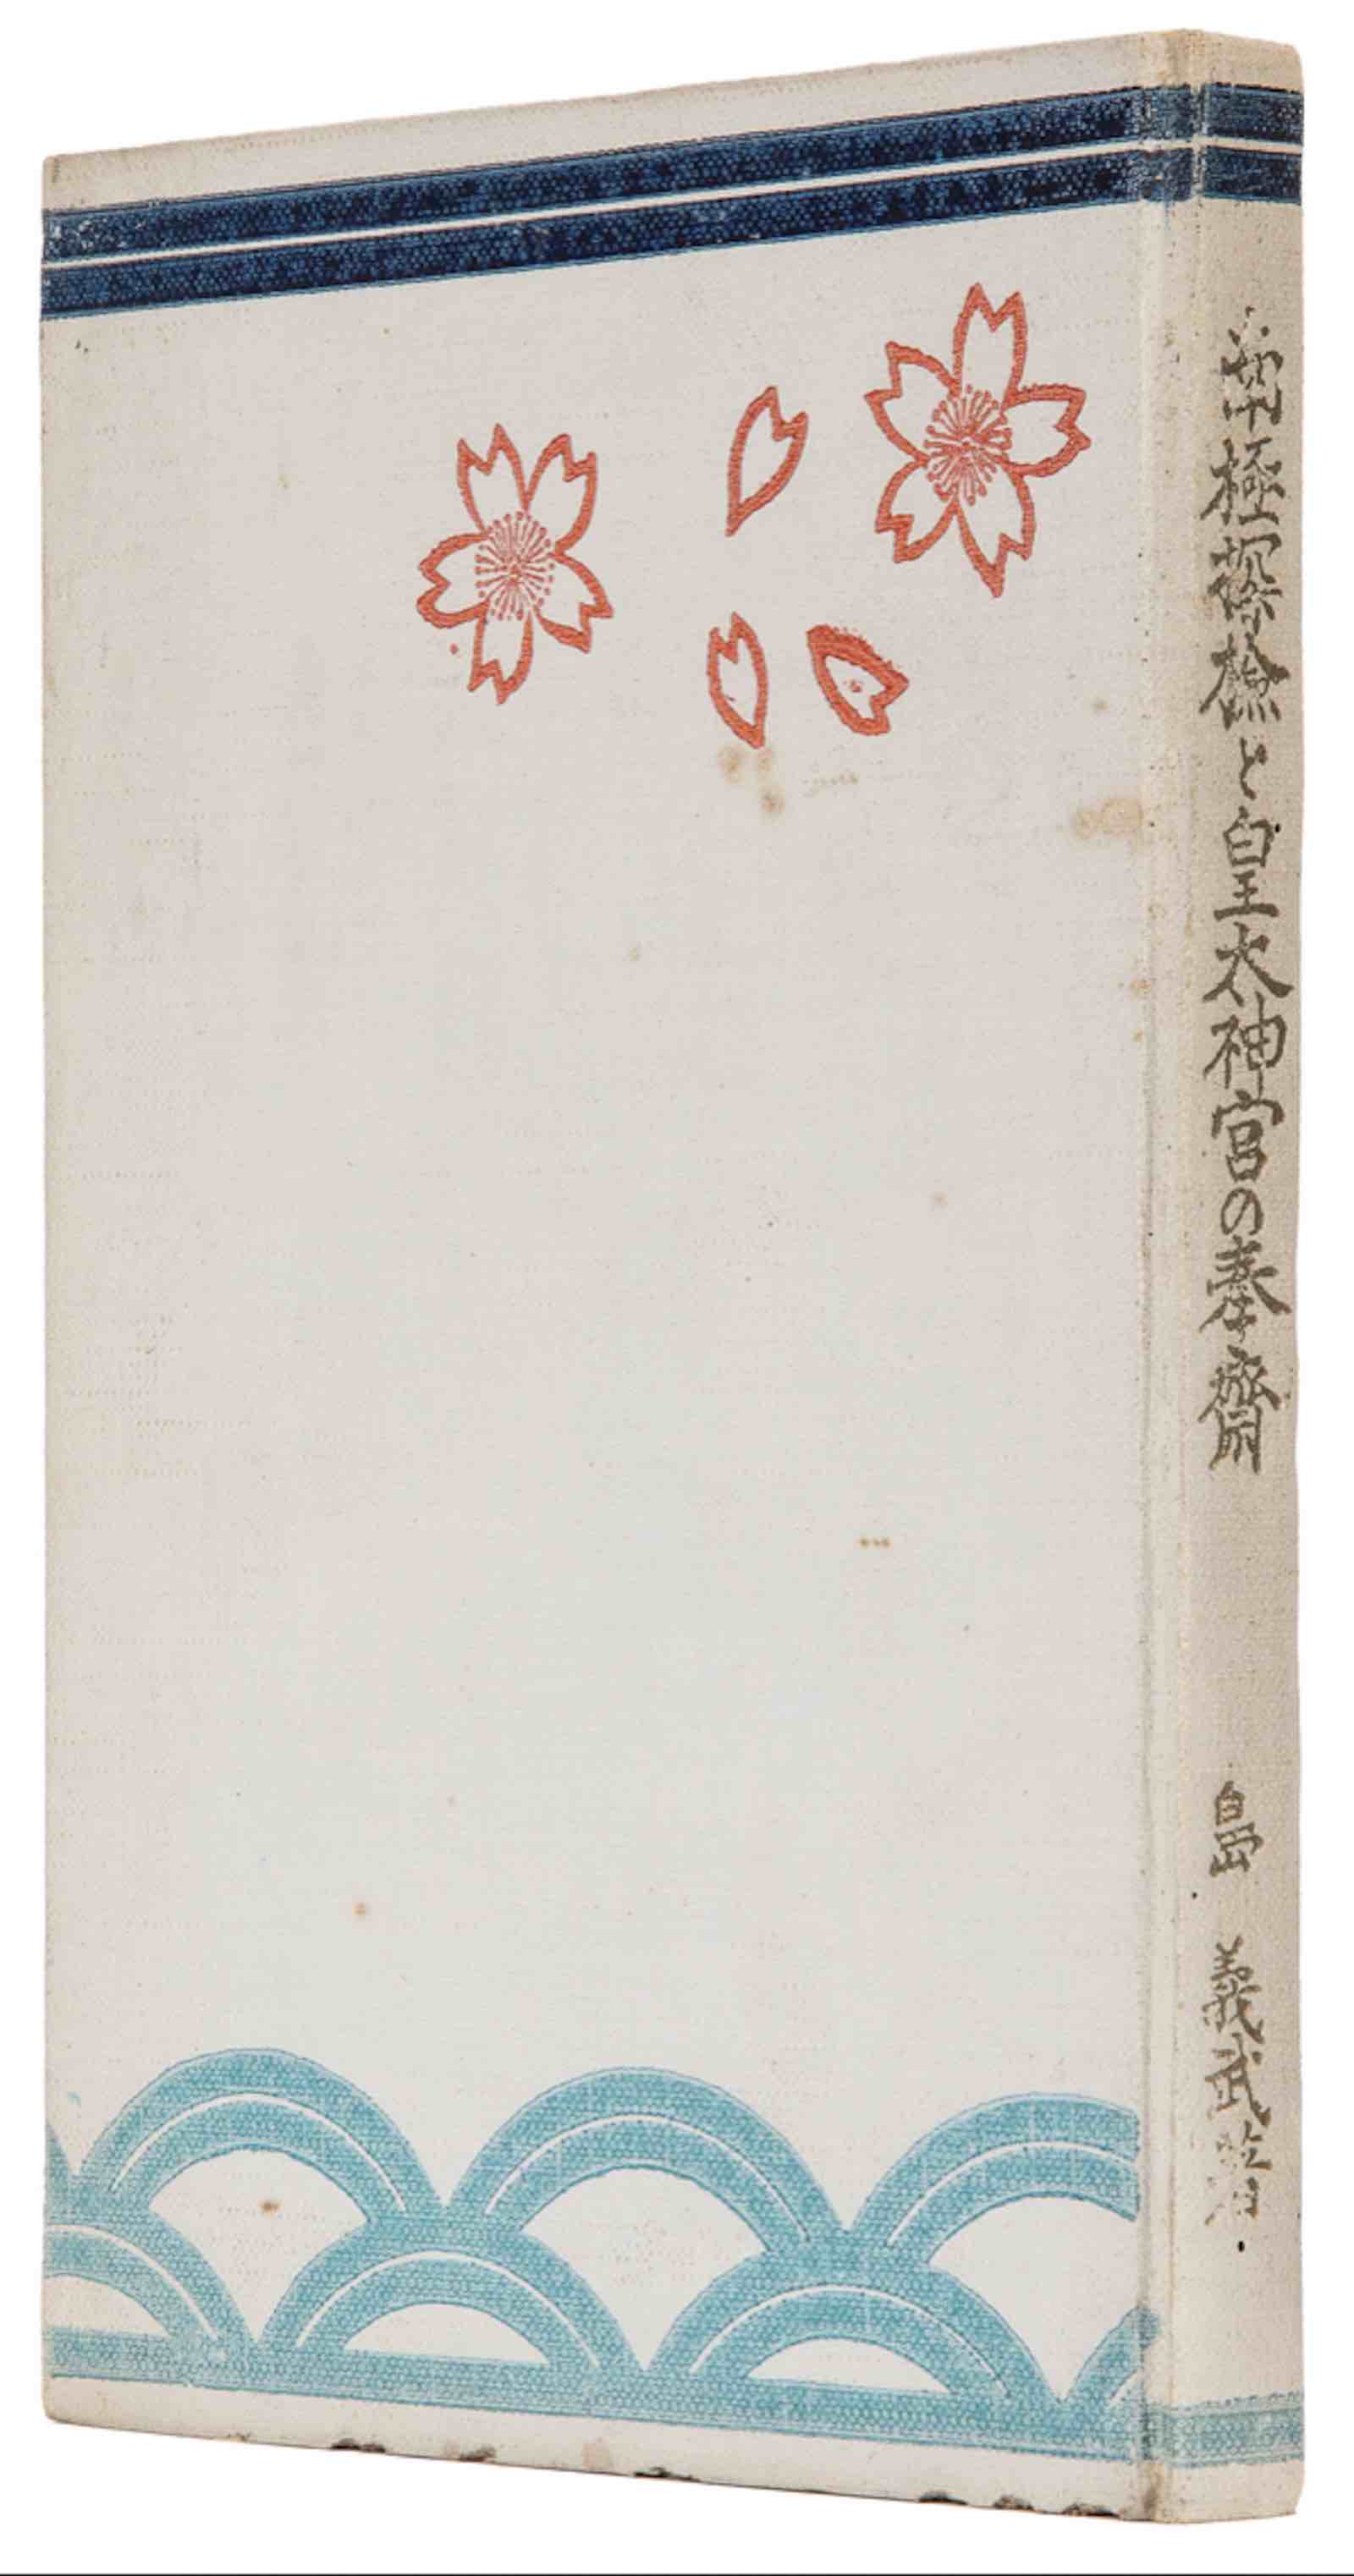 南極探檢と皇大神宮の奉齋
島 義武著